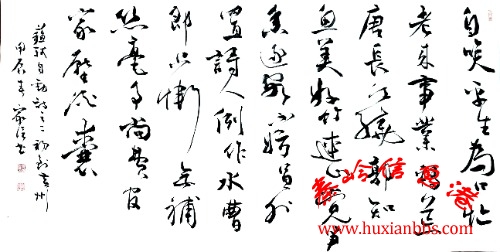 自笑平生為口忙
老来事業轉荒
唐長江繞郭知
魚美好竹連山覺笋
香逐客不妨員外
置詩人例作水曹
郎只慚無補
絲毫事尚費官
家壓酒囊
初到黄州
www.huxianbbs.com